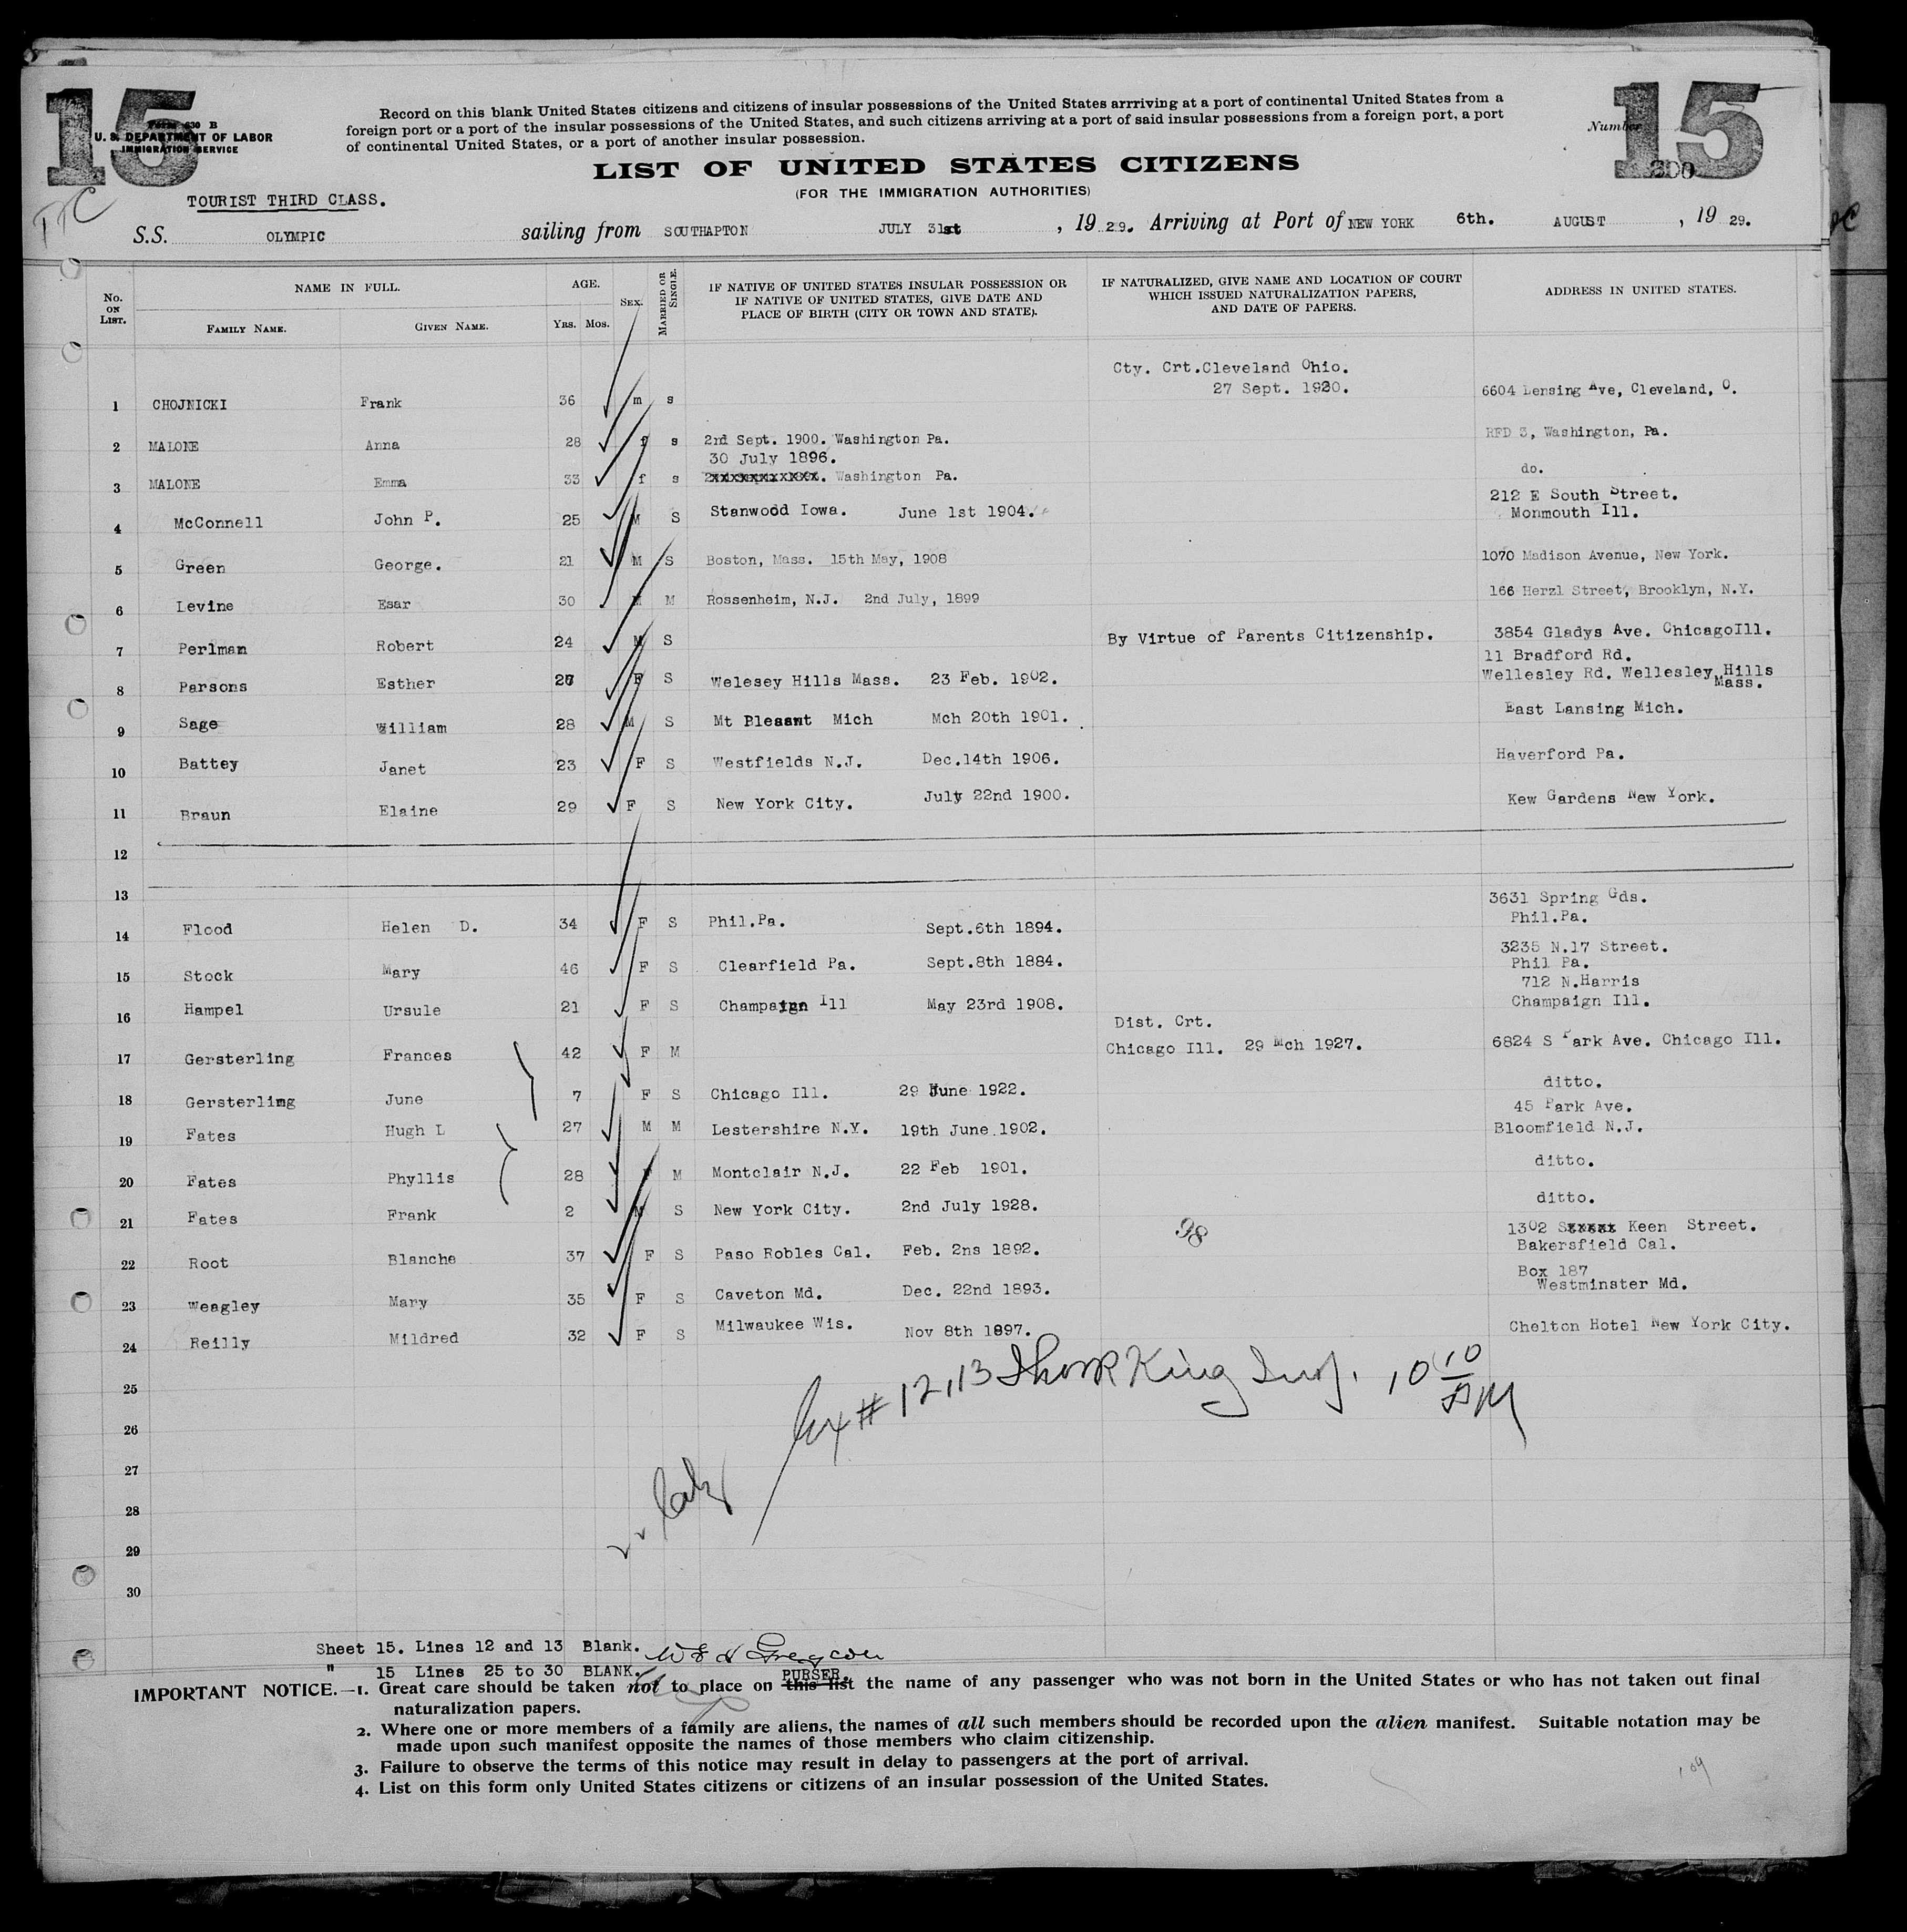 15
15
Form 630 B
U. S. DEPARTMENT OF LABOR
IMMIGRATION SERVICE
Number
300
Record on this blank United States citizens and citizens of insular possessions of the United States arrriving at a port of continental United States from a
foreign port or a port of the insular possessions of the United States, and such citizens arriving at a port of said insular possessions from a foreign port, a port
of continental United States, or a port of another insular possession.
LIST OF UNITED STATES CITIZENS
(FOR THE IMMIGRATION AUTHORITIES)
TTC
TOURIST THIRD CLASS.
S.S. OLYMPIC sailing from SOUTHAPTON JULY 31st , 19 29. Arriving at Port of NEW YORK 6th. AUGUST , 19 29.
No. ON LIST. NAME IN FULL. FAMILY NAME. GIVEN NAME. AGE. YRS. MOS. SEX. MARRIED OR SINGLE. IF NATIVE OF UNITED STATES INSULAR POSSESSION OR IF NATIVE OF UNITED STATES, GIVE DATE AND PLACE OF BIRTH (CITY OR TOWN AND STATE). IF NATURALIZED, GIVE NAME AND LOCATION OF COURT WHICH ISSUED NATURALIZATION PAPERS, AND DATE OF PAPERS. ADDRESS IN UNITED STATES.
Cty. Crt.Cleveland Ohio.
27 Sept. 1920.
1 CHOJNICKI Frank 36 m s 6604 Lensing Ave, Cleveland, O.
2 MALONE Anna 28 f s 2nd Sept. 1900. Washington Pa. RFD 3, Washington, Pa.
30 July 1896.
3 MALONE Emma 33 f s Washington Pa. do.
212 E South Street.
4 McConnell John P. 25 M S Stanwood Iowa. June 1st 1904. Monmouth Ill.
5 Green George. 21 M S Boston, Mass. 15th May, 1908 1070 Madison Avenue, New York.
6 Levine Esar 30 M M Rossenheim, N.J. 2nd July, 1899 166 Herzl Street, Brooklyn, N.Y.
7 Perlman Robert 24 M S By Virtue of Parents Citizenship. 3854 Gladys Ave. ChicagoIll.
11 Bradford Rd.
8 Parsons Esther F S Welesey Hills Mass. 23 Feb. 1902. Wellesley Rd. Wellesley Hills
Mass.
9 Sage William 28 M S Mt Pleasnt Mich Mch 20th 1901. East Lansing Mich.
10 Battey Janet 23 F S Westfields N.J. Dec.14th 1906. Haverford Pa.
11 Braun Elaine 29 F S New York City. July 22nd 1900. Kew Gardens New York.
12
13
3631 Spring Gds.
14 Flood Helen D. 34 F S Phil.Pa. Sept.6th 1894. Phil.Pa.
3235 N.17 Street.
15 Stock Mary 46 F S Clearfield Pa. Sept.8th 1884. Phil Pa.
712 N.Harris
16 Hampel Ursule 21 F S Champaign Ill May 23rd 1908. Champaign Ill.
Dist. Crt.
17 Gersterling Frances 42 F M Chicago Ill. 29 Mch 1927. 6824 S Park Ave. Chicago Ill.
18 Gersterling June 7 F S Chicago Ill. 29 June 1922. ditto.
45 Park Ave.
19 Fates Hugh L 27 M M Lestershire N.Y. 19th June 1902. Bloomfield N.J.
20 Fates Phyllis 28 F M Montclair N.J. 22 Feb 1901. ditto.
21 Fates Frank 2 M S New York City. 2nd July 1928. ditto.
98
1302 Keen Street.
22 Root Blanche 37 F S Paso Robles Cal. Feb. 2ns 1892. Bakersfield Cal.
Box 187
23 Weagley Mary 35 F S Caveton Md. Dec. 22nd 1893. Westminster Md.
24 Reilly Mildred 32 F S Milwaukee Wis. Nov 8th 1897. Chelton Hotel New York City.
25
26
27
28
29
30
# 12,13 King 10 10 AM
Sheet 15. Lines 12 and 13 Blank.
" 15 Lines 25 to 30 BLANK.
PURSER.
IMPORTANT NOTICE.—1. Great care should be taken not to place on this list the name of any passenger who was not born in the United States or who has not taken out final
naturalization papers.
2. Where one or more members of a family are aliens, the names of all such members should be recorded upon the alien manifest. Suitable notation may be
made upon such manifest opposite the names of those members who claim citizenship.
3. Failure to observe the terms of this notice may result in delay to passengers at the port of arrival.
4. List on this form only United States citizens or citizens of an insular possession of the United States.